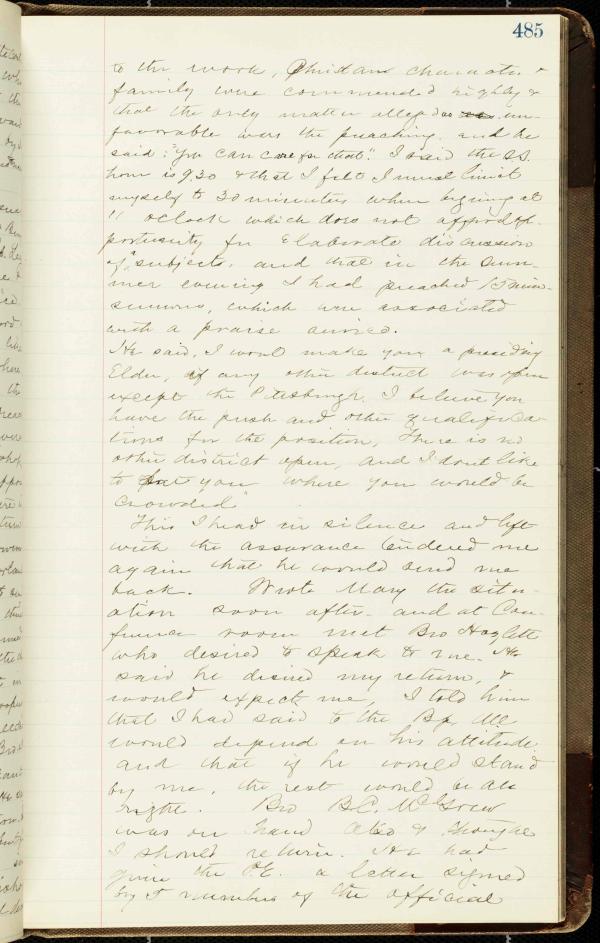 485
to the work, Christian character &
family were commended highly &
that the only matter alleged as un-
favorable was the preaching, and he
said: "You can care for that." I said the S.S.
hour is 9.30 & that I felt I must limit
myself to 30 minutes when begining at
11 oclock which does not afford op-
portunity for Elaborate discussion
of subjects, and that in the Sum-
mer evening I had preached 15 min-
sermons, which were associated
with a praise service.
He said, I wont make you a presiding
Elder, if any other district was open
except the Pittsburgh. I believe you
have the push and other qualifica-
tions for the position, There is no
other district open, and I dont like
to put you where you would be
crowded"
This I heard in silence and left
with the assurance tendered me
again that he would send me
back. Wrote Mary the situ-
ation soon after- and at Con-
ference room met Bro Hazlett
who desired to speak to me. He
said he desired my return, &
would expect me, I told him
that I had said to the Bp. All
would depend on his attitude
and that if he would stand
by me, the rest would be all
right. Bro B.C. McGrew
was on hand also & thought
I should return. He had
given the P.E. a letter signed
by 5 members of the official